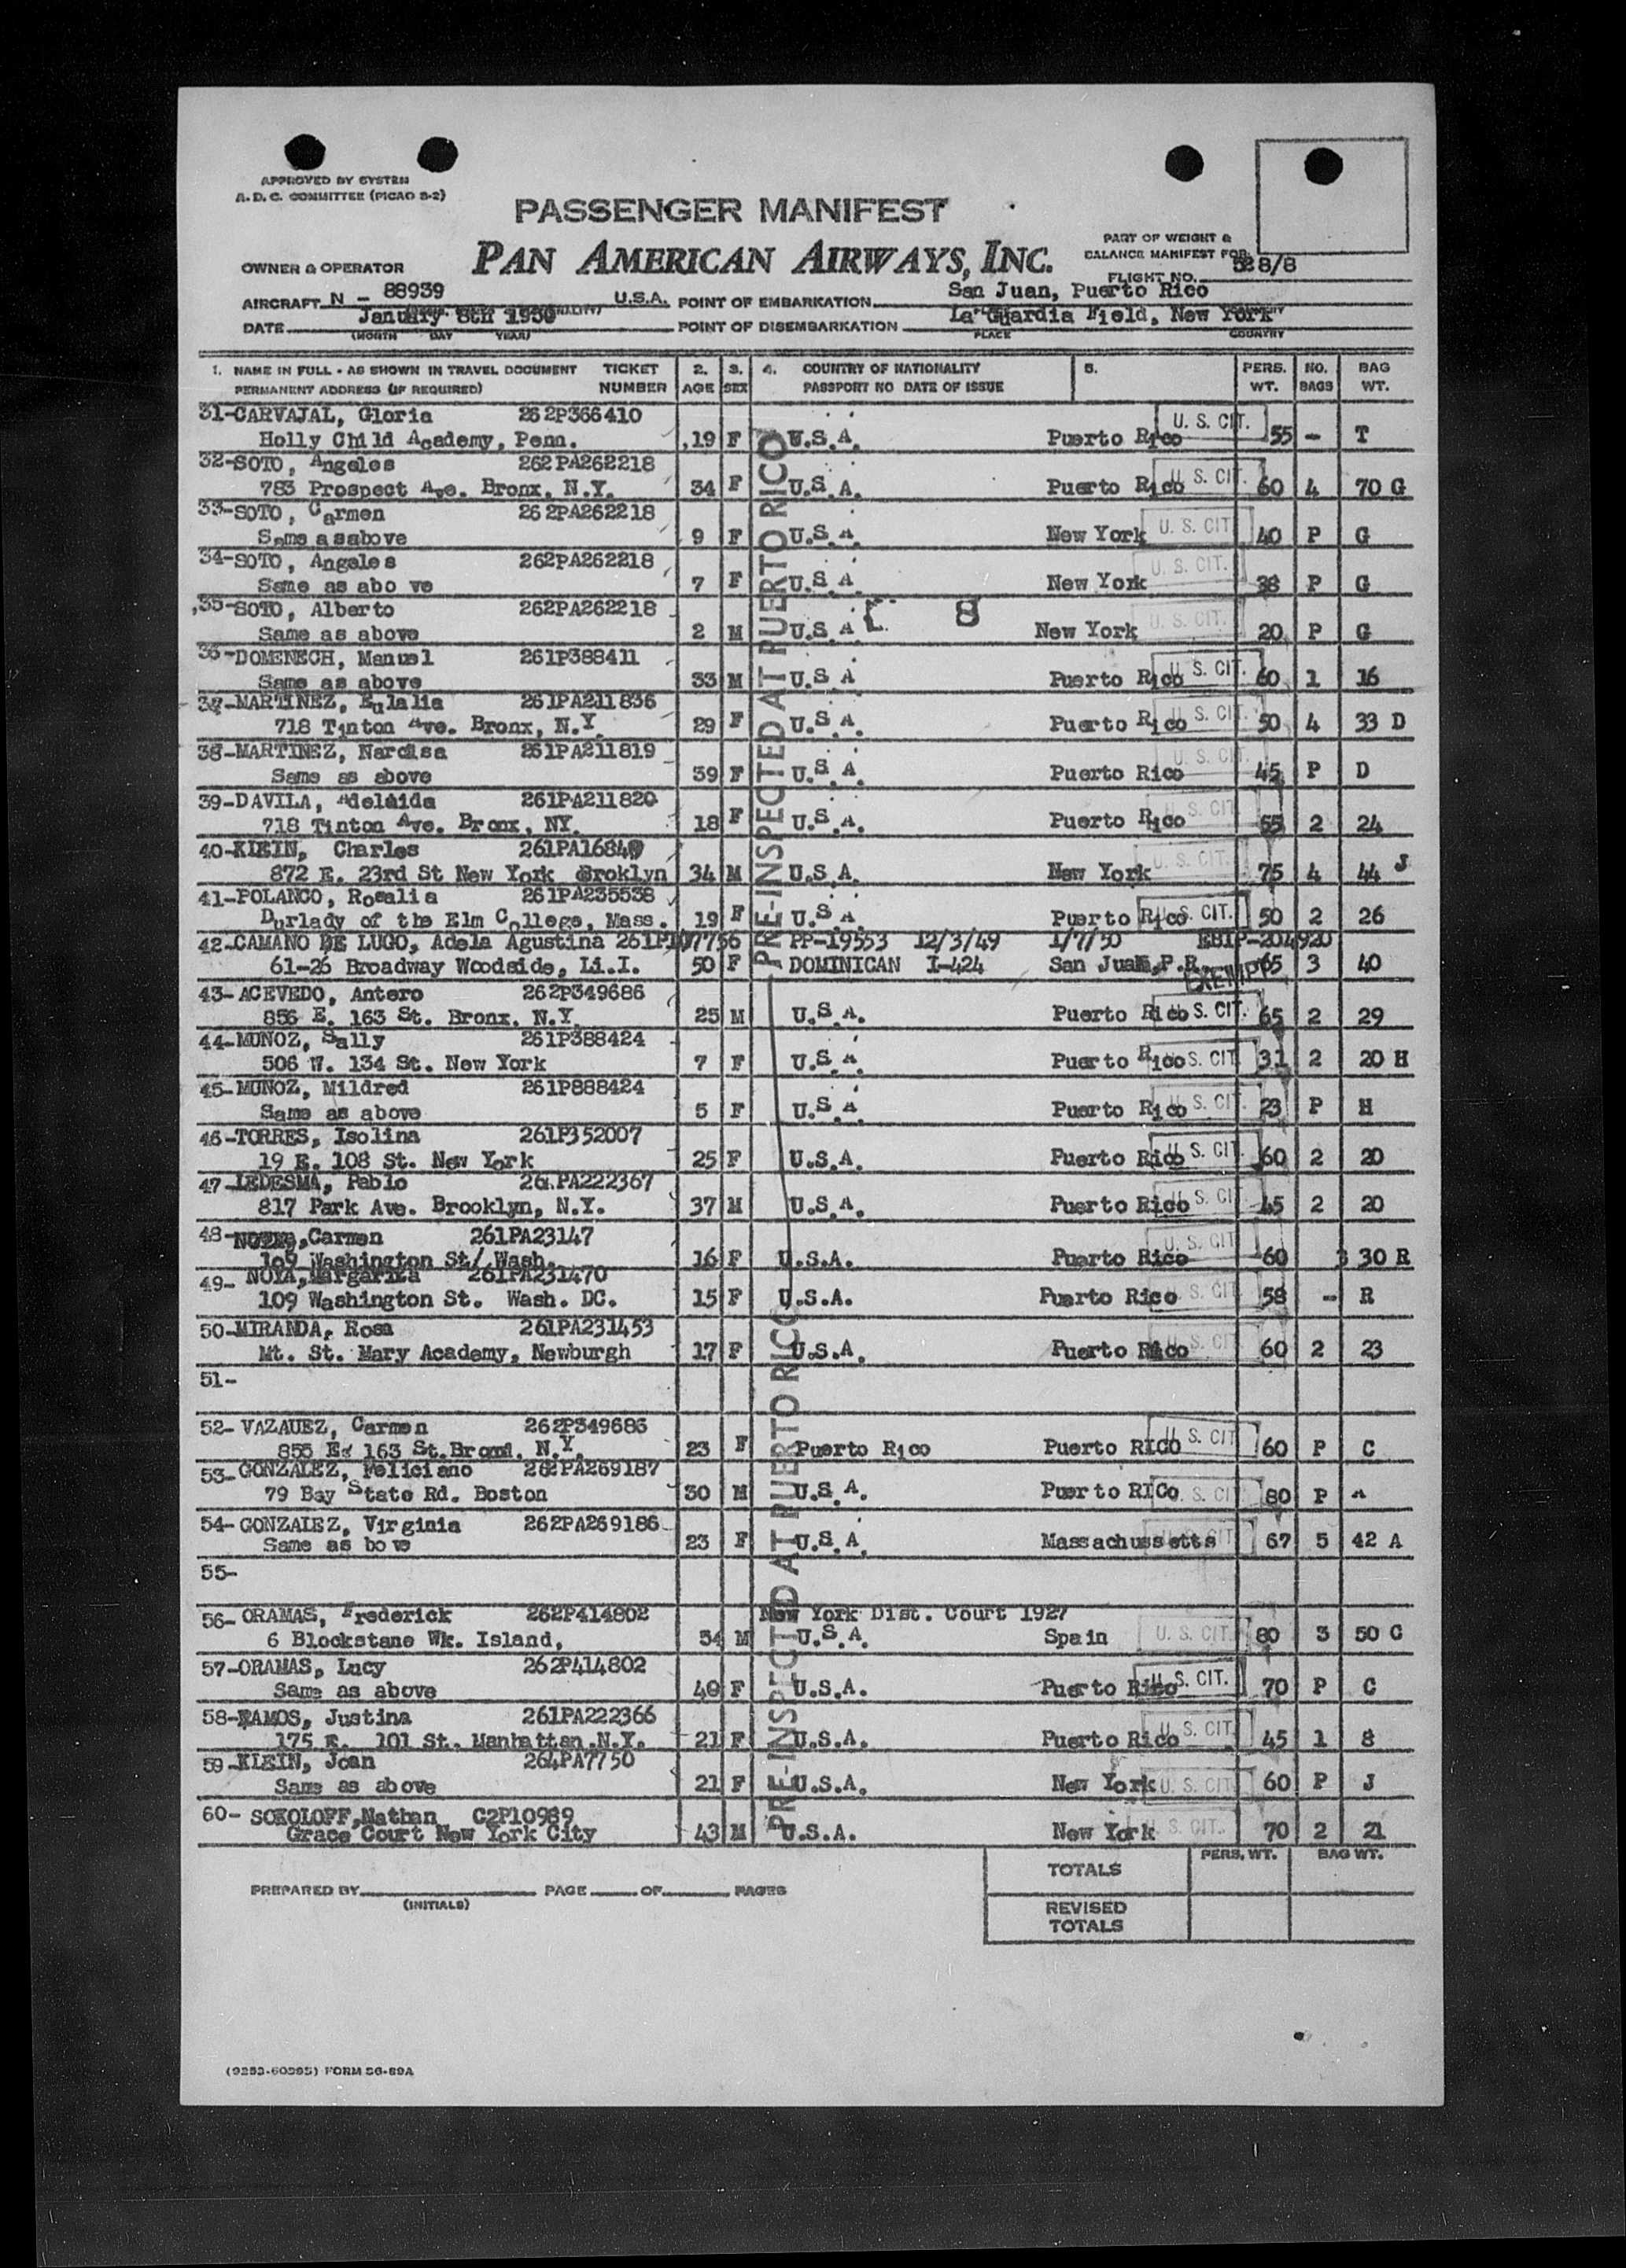 APPROVED BY SYSTEM
A. D. C. COMMITTEE (PICAO S-2)
PASSENGER MANIFEST
PART OF WEIGHT &
BALANCE MANIFEST FOR
OWNER & OPERATOR PAN AMERICAN AIRWAYS, INC.
FLIGHT NO. 528/8
AIRCRAFT N - 88939 U.S.A. POINT OF EMBARKATION San Juan, Puerto Rico
DATE January 8th 1950 POINT OF DISEMBARKATION La Guardia Field, New York
(MONTH DAY YEAR) PLACE COUNTRY
1. NAME IN FULL - AS SHOWN IN TRAVEL DOCUMENT TICKET 2. 3. 4. COUNTRY OF NATIONALITY 5. PERS. NO. BAG
PERMANENT ADDRESS (IF REQUIRED) NUMBER AGE SEX PASSPORT NO DATE OF ISSUE WT. BAGS WT.
PRE-INSPECTED AT PUERTO RICO
31-CARVAJAL, Gloria 262P366410 U. S. CIT.
Holly Child Academy, Penn. 19 F U.S.A. Puerto Rico 55 - T
32-SOTO, Angeles 262PA262218 U. S. CIT.
783 Prospect Ave. Bronx, N.Y. 34 F U.S.A. Puerto Rico 60 4 70 G
33-SOTO, Carmen 262PA262218 U. S. CIT.
Same asabove 9 F U.S.A. New York 40 P G
34-SOTO, Angeles 262PA262218 U. S. CIT.
Same as abo ve 7 F U.S.A New York 38 P G
35-SOTO, Alberto 262PA262218 8 U. S. CIT.
Same as above 2 M U.S.A New York 20 P G
36-DOMENECH, Manuel 261P388411 U. S. CIT.
Same as above 33 M U.S.A Puerto Rico 60 1 16
37-MARTINEZ, Eulalia 261PA211836 U. S. CIT.
718 Tinton Ave. Bronx, N.Y. 29 F U.S.A. Puerto Rico 50 4 33 D
38-MARTINEZ, Narcisa 261PA211819 U. S. CIT.
Same as above 39 F U.S.A. Puerto Rico 45 P D
39-DAVILA, Adelaida 261PA211820 U. S. CIT.
718 Tinton Ave. Bronx, NY. 18 F U.S.A. Puerto Rico 55 2 24
40-KLEIN, Charles 261PA16840 U. S. CIT.
872 E. 23rd St New York Broklyn 34 M U.S.A. New York 75 4 44 J
41-POLANCO, Rosalia 261PA235538 U. S. CIT.
Ourlady of the Elm College, Mass. 19 F U.S.A. Puerto Rico 50 2 26
42-CAMANO DE LUGO, Adela Agustina PP-19553 12/3/49 1/7/50
61-26 Broadway Woodside, Li.I. 50 F DOMINICAN I-424 San Juan, P.R. EXEMPT 65 3 40
43- ACEVEDO, Antero 262P349686 U. S. CIT.
856 E. 163 St. Bronx. N.Y. 25 M U.S.A. Puerto Rico 65 2 29
44-MUNOZ, Sally 261P388424 U. S. CIT.
506 W. 134 St. New York 7 F U.S.A. Puerto Rico 31 2 20 H
45-MUNOZ, Mildred 261P888424 U. S. CIT.
Same as above 5 F U.S.A Puerto Rico 23 P H
46-TORRES, Isolina 261P352007 U. S. CIT.
19 E. 108 St. New York 25 F U.S.A. Puerto Rico 60 2 20
47-LEDESMA, Pablo 261PA222367 U. S. CIT.
817 Park Ave. Brooklyn, N.Y. 37 M U.S.A. Puerto Rico 45 2 20
48- Carmen 261PA23147 U. S. CIT.
109 Washington St/ Wash. 16 F U.S.A. Puerto Rico 60 3 30 R
49- NOYA, Margarita 261PA231470 U. S. CIT.
109 Washington St. Wash. DC. 15 F U.S.A. Puerto Rico 58 - R
50-MIRANDA, Rosa 261PA231453 U. S. CIT.
Mt. St. Mary Academy, Newburgh 17 F U.S.A. Puerto Rico 60 2 23
51-
PRE-INSPECTED AT PUERTO RICO
52- VAZAUEZ, Carmen 262P349686 U. S. CIT.
855 E. 163 St. N.Y. 23 F Puerto Rico Puerto RICO 60 P C
53-GONZALEZ, Feliciano 262PA269187 U. S. CIT.
79 Bay State Rd. Boston 30 M U.S.A. Puerto RICo 80 P A
54- GONZALEZ, Virginia 262PA269186 U. S. CIT.
Same as bo ve 23 F U.S.A. Massachussetts 67 5 42 A
55-
56- ORAMAS, Frederick 262P414802 New York Dist. Court 1927
6 Blockstane Wk. Island, 54 M U.S.A. Spain U. S. CIT. 80 3 50 C
57-ORAMAS, Lucy 262P414802 U. S. CIT.
Same as above 40 F U.S.A. Puerto Rico 70 P C
58-RAMOS, Justina 261PA222366 U. S. CIT.
175 E. 101 St. Manhattan.N.Y. 21 F U.S.A. Puerto Rico 45 1 8
59-KLEIN, Joan 264PA7750 U. S. CIT.
Same as above 21 F U.S.A. New York 60 P J
60- SOKOLOFF,Nathan C2P10989 U. S. CIT.
Grace Court New York City 43 M U.S.A. New York 70 2 21
PERS. WT. BAG WT.
TOTALS
PREPARED BY PAGE OF PAGES
(INITIALS)
REVISED
TOTALS
(9253-60395) FORM SG-89A